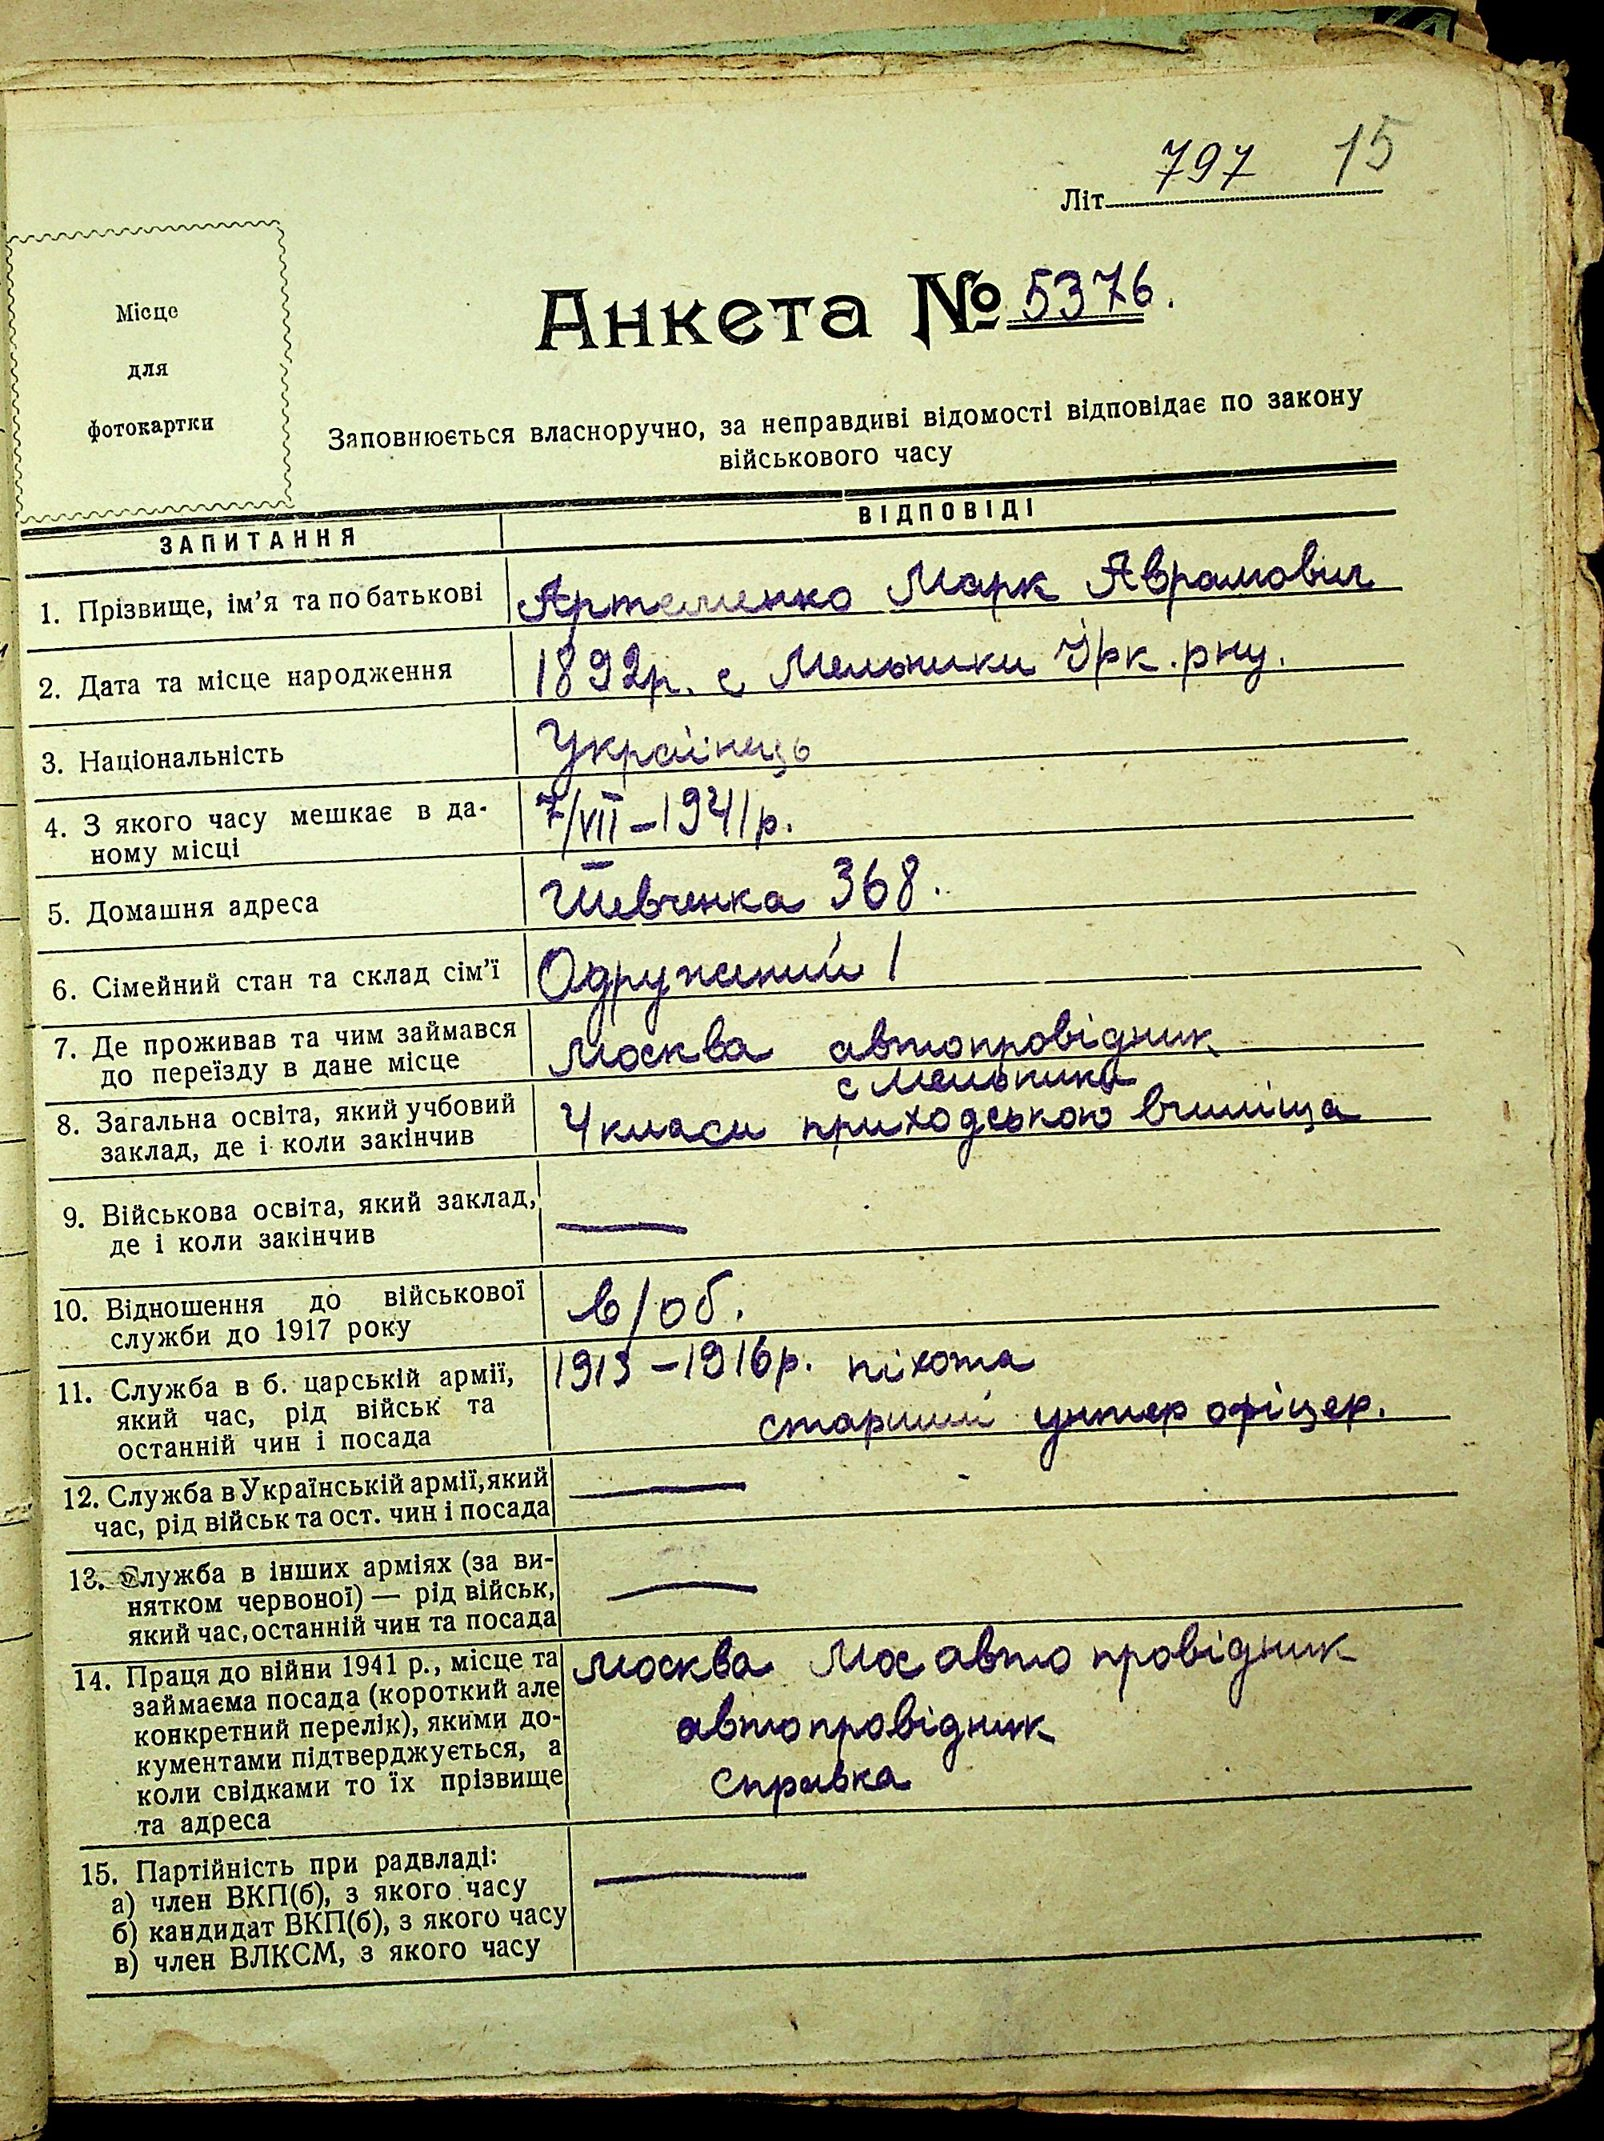 797 15
Літ
Місце
для
фотокартки
Анкета № 5376.
Заповнюється власноручно, за неправдиві відомості відповідає по закону
військового часу
ЗАПИТАННЯ
ВІДПОВІДІ
1. Прізвище, ім'я та по батькові
Артеменко Марк Аврамович
2. Дата та місце народження
1892р. с Мельники Ірк. рну.
3. Національність
Українець
4. З якого часу мешкає в да-
ному місці
7/VII – 1941р.
5. Домашня адреса
Шевченка 368.
6. Сімейний стан та склад сім'ї
Одружений 1
7. Де проживав та чим займався
до переїзду в дане місце
Москва автопровідник
8. Загальна освіта, який учбовий
заклад, де і коли закінчив
с Мельники
4 класи приходською вчиліща
9. Військова освіта, який заклад,
де і коли закінчив
—
10. Відношення до військової
служби до 1917 року
в/об.
11. Служба в б. царській армії,
який час, рід військ та
останній чин і посада
1913 – 1916р. піхота
старший унтер офіцер.
12. Служба в Українській армії, який
час, рід військ та ост. чин і посада
—
13. Служба в інших арміях (за ви-
нятком червоної) — рід військ,
який час, останній чин та посада
—
14. Праця до війни 1941 р., місце та
займаєма посада (короткий але
конкретний перелік), якими до-
кументами підтверджується, а
коли свідками то їх прізвище
та адреса
Москва Мос авто провідник
автопровідник
справка
15. Партійність при радвладі:
а) член ВКП(б), з якого часу
б) кандидат ВКП(б), з якого часу
в) член ВЛКСМ, з якого часу
—